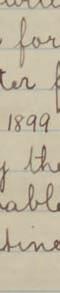 for
ter f
1899
y the
able
tine